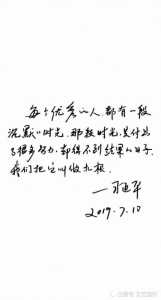 每个优秀的人都有一段
沉默的时光。那段时光,是付出
了很多努力,却得不到结果的日子,
我们把它叫做扎根。
2019.7.10